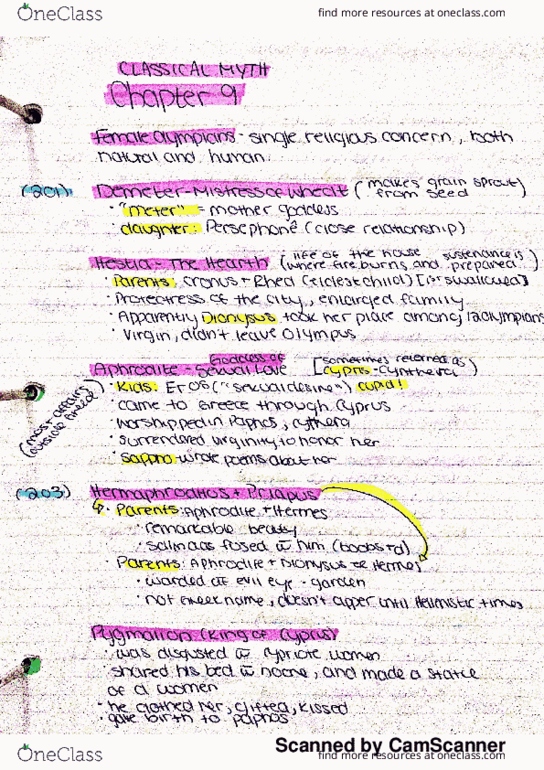 OneClass
find more resources at oneclass.com
CLASSICAL MYTH
Chapter 9
Female Olympians - single religious concern, both
natural and human.
(201) Demeter - Mistress of Wheat (makes grain sprout from seed)
• "meter" = mother goddess
• daughter: Persephone (close relationship)
Hestia - The Hearth (life of the house where fire burns and sustenance is prepared)
• Parents: Cronus + Rhea (eldest child) [1st swallowed]
• Protectress of the city, enlarged family
• Apparently Dionysus took her place among 12 olympians
• Virgin, didn't leave Olympus
Aphrodite - Goddess of Sexual Love [sometimes referred as) Cypris - Cytherea]
• Kids: Eros ("sexual desire") cupid!
• came to Greece through Cyprus
(most affairs outside breed)
• worshipped in Paphos, Cythera
• surrendered virginity to honor her
• sappho wrote poems about her
(203) Hermaphroditos + Priapus
• Parents: Aphrodite + Hermes
• remarkable beauty
• salmacis fused w him (boobs + d)
• Parents: Aphrodite + Dionysus or Hermes
• warded off evil eye - garden
• not Greek name, doesn't apper until Hellenistic times
Pygmalion (King of Cyprus)
• was disgusted w cypriote women
shared his bed w noone, and made a statue
of a women
• he clothed her, gifted, kissed
• gave birth to paphos
Scanned by CamScanner
OneClass
find more resources at oneclass.com